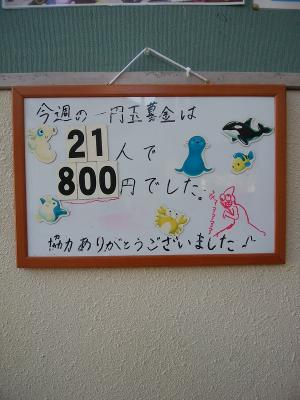 今週の一円玉募金は
21人で
800円でした。
協力ありがとうございました♪